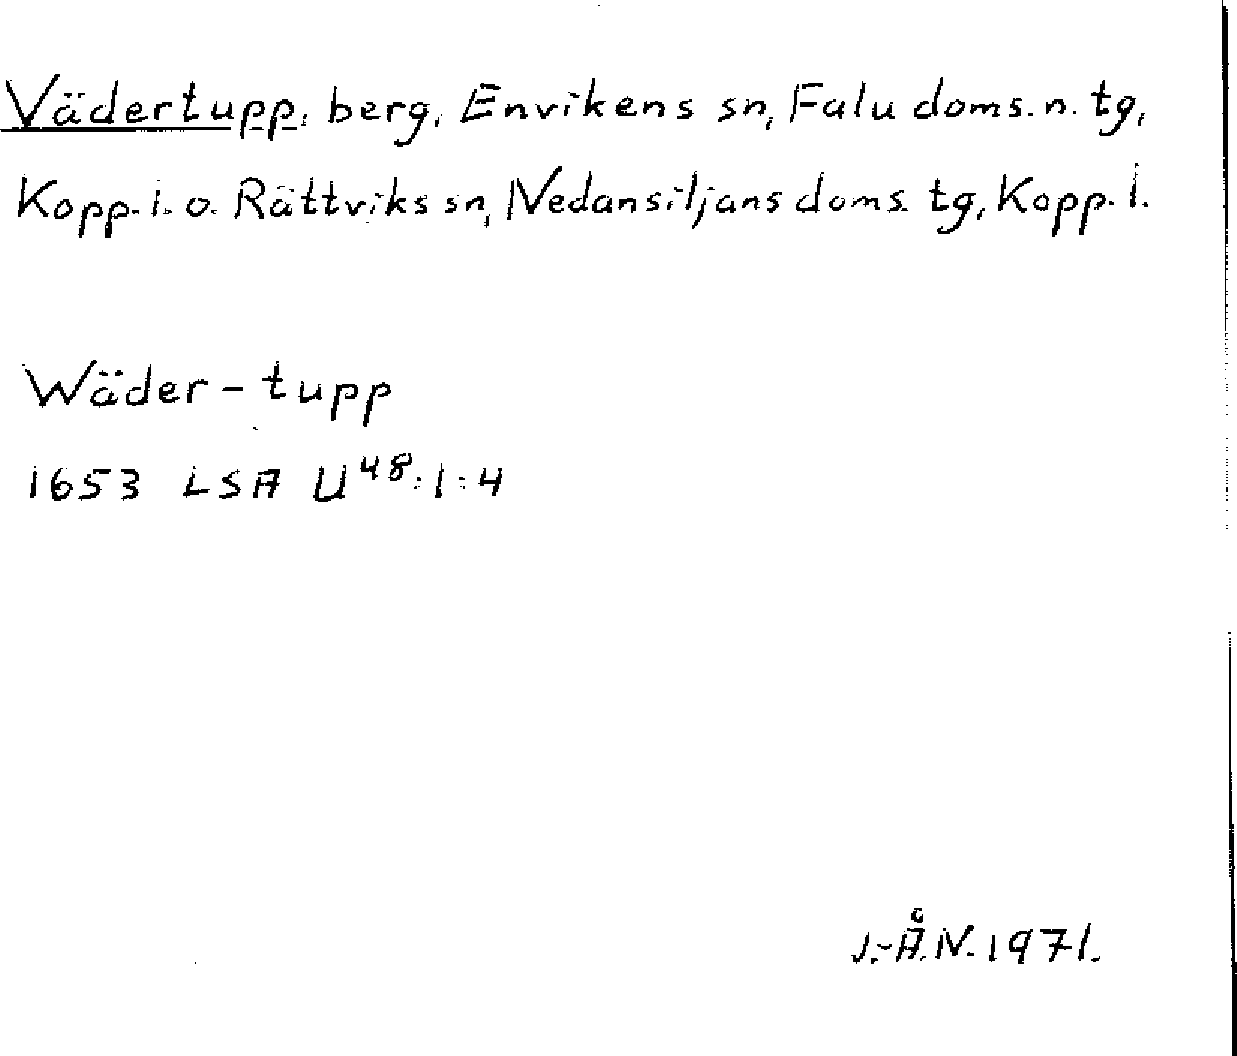 Vädertupp, berg, Envikens sn, Falu doms. n. tg,
Kopp. l. o. Rättviks sn, Nedansiljans doms. tg, Kopp. l.
Wäder-tupp
1653 LSA U48:1:4
J.-Å.N. 1971.